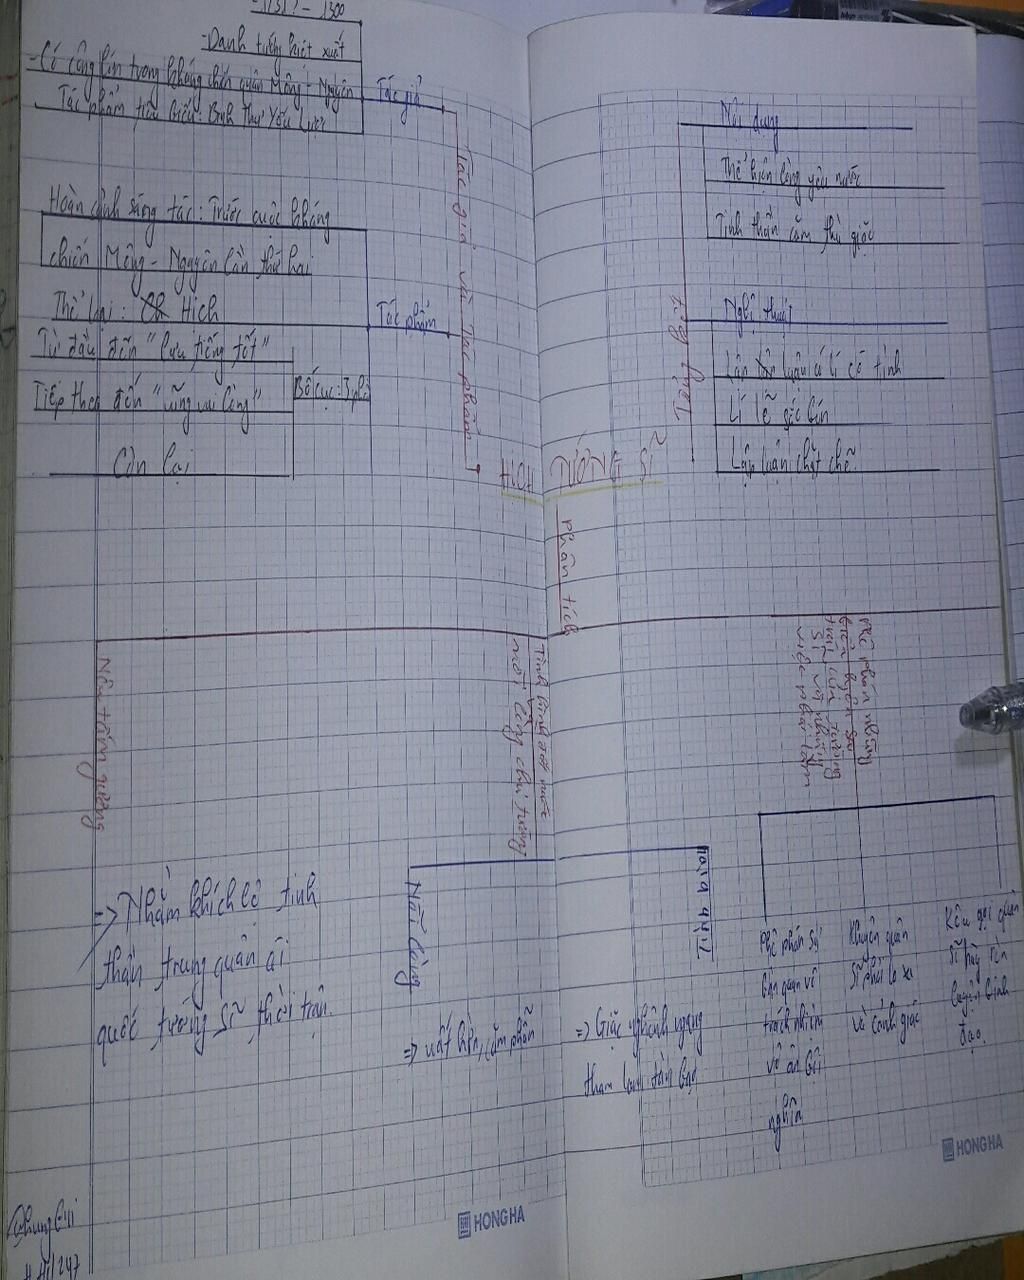 1231? - 1300
-Danh tướng kiệt xuất
-Có công lớn trong kháng chiến quân Mông - Nguyên
Tác phẩm tiêu biểu: Binh Thư Yếu Lược
Tác giả
Hoàn cảnh sáng tác: Trước cuộc kháng
chiến Mông - Nguyên lần thứ hai
Thể loại: Hịch
Tác phẩm
Từ đầu đến "lưu tiếng tốt"
Tiếp theo đến "cũng vui lòng"
Còn lại
Bố cục: 3 phần
Tác giả và tác phẩm
HỊCH TƯỚNG SĨ
Tổng kết
Nội dung
Thể hiện lòng yêu nước
Tinh thần căm thù giặc
Nghệ thuật
luận có lí có tình
Lí lẽ sắc bén
Lập luận chặt chẽ
Phân tích
Nêu tấm gương
=> Nhằm khích lệ tinh
thần trung quân ái
quốc tướng sĩ thời trần.
Tình hình đất nước
nỗi lòng chủ tướng
Nỗi lòng
=> uất hận, căm phẫn
=> Giặc nghênh ngang
tham lam tàn bạo
Phê phán những
biểu hiện sai
trái của tướng
sĩ và những
việc phải làm
Phê phán sự
bàn quan vô
trách nhiệm
vô ân bội
nghĩa
Khuyên quân
sĩ phải lo xa
và cảnh giác
Kêu gọi quân
sĩ hãy rèn
luyện binh
đạo.
HONG HA
HONG HA